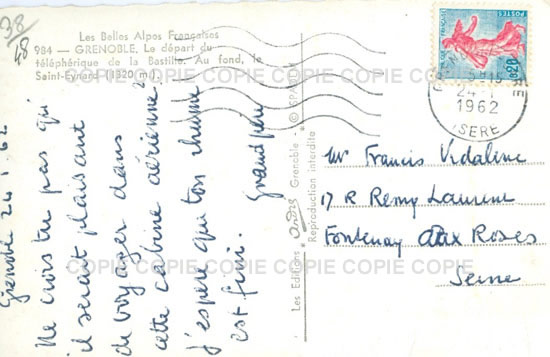 38/48
Les Belles Alpes Françaises
984 — GRENOBLE. Le départ du
téléphérique de la Bastille. Au fond, le
Saint-Eynard (1320 m).
Grenoble 24 1 62
Ne crois tu pas qu'
il serait plaisant
de voyager dans
cette cabine aérienne?
J'espère que ton rhume
est fini. Grand père
Les Editions Grenoble
Reproduction interdite
POSTES
0,20
24-1
1962
ISERE
Mr Francis Vidaline
17 R Remy Laurent
Fontenay aux Roses
Seine
COPIE COPIE COPIE COPIE COPIE COPIE
COPIE COPIE COPIE COPIE COPIE COPIE